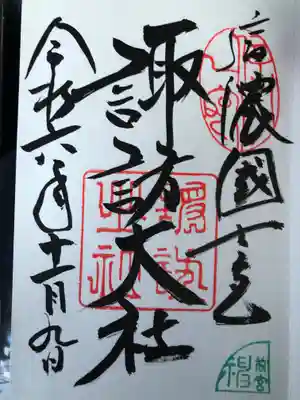 信濃國一之宮
諏訪大社
令和六年十一月九日
諏訪大社
前宮